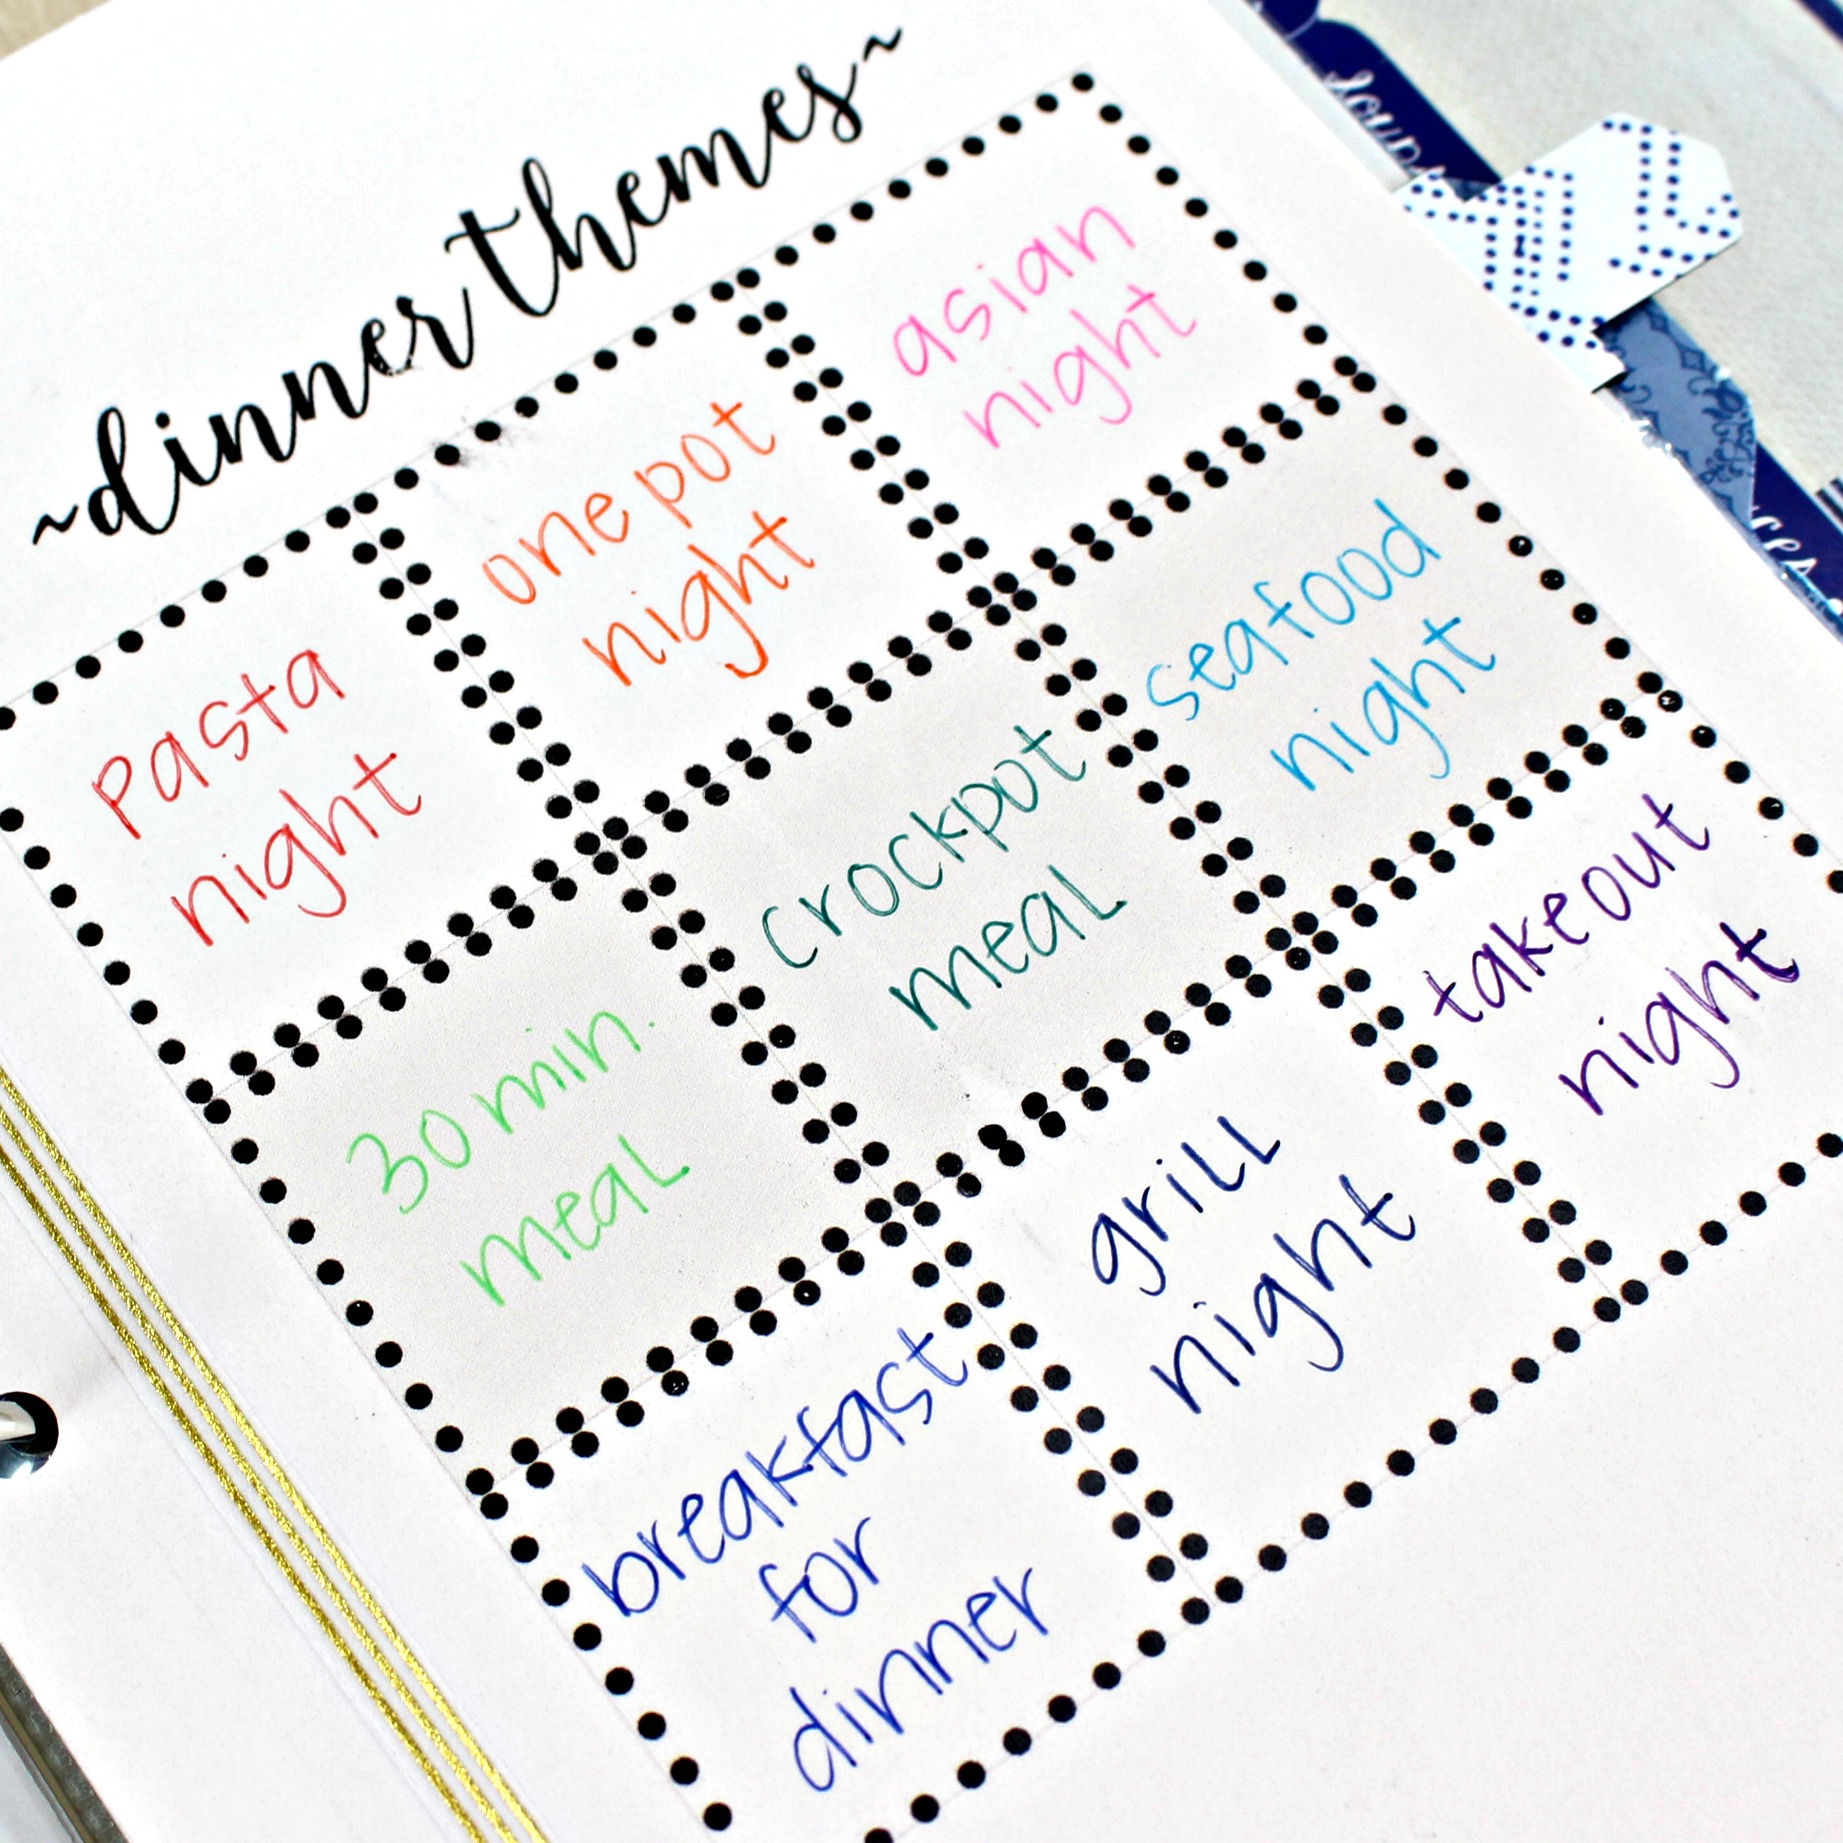 ~dinner themes~
pasta
night
one pot
night
asian
night
30 min.
meal
crockpot
meal
seafood
night
breakfast
for
dinner
grill
night
takeout
night